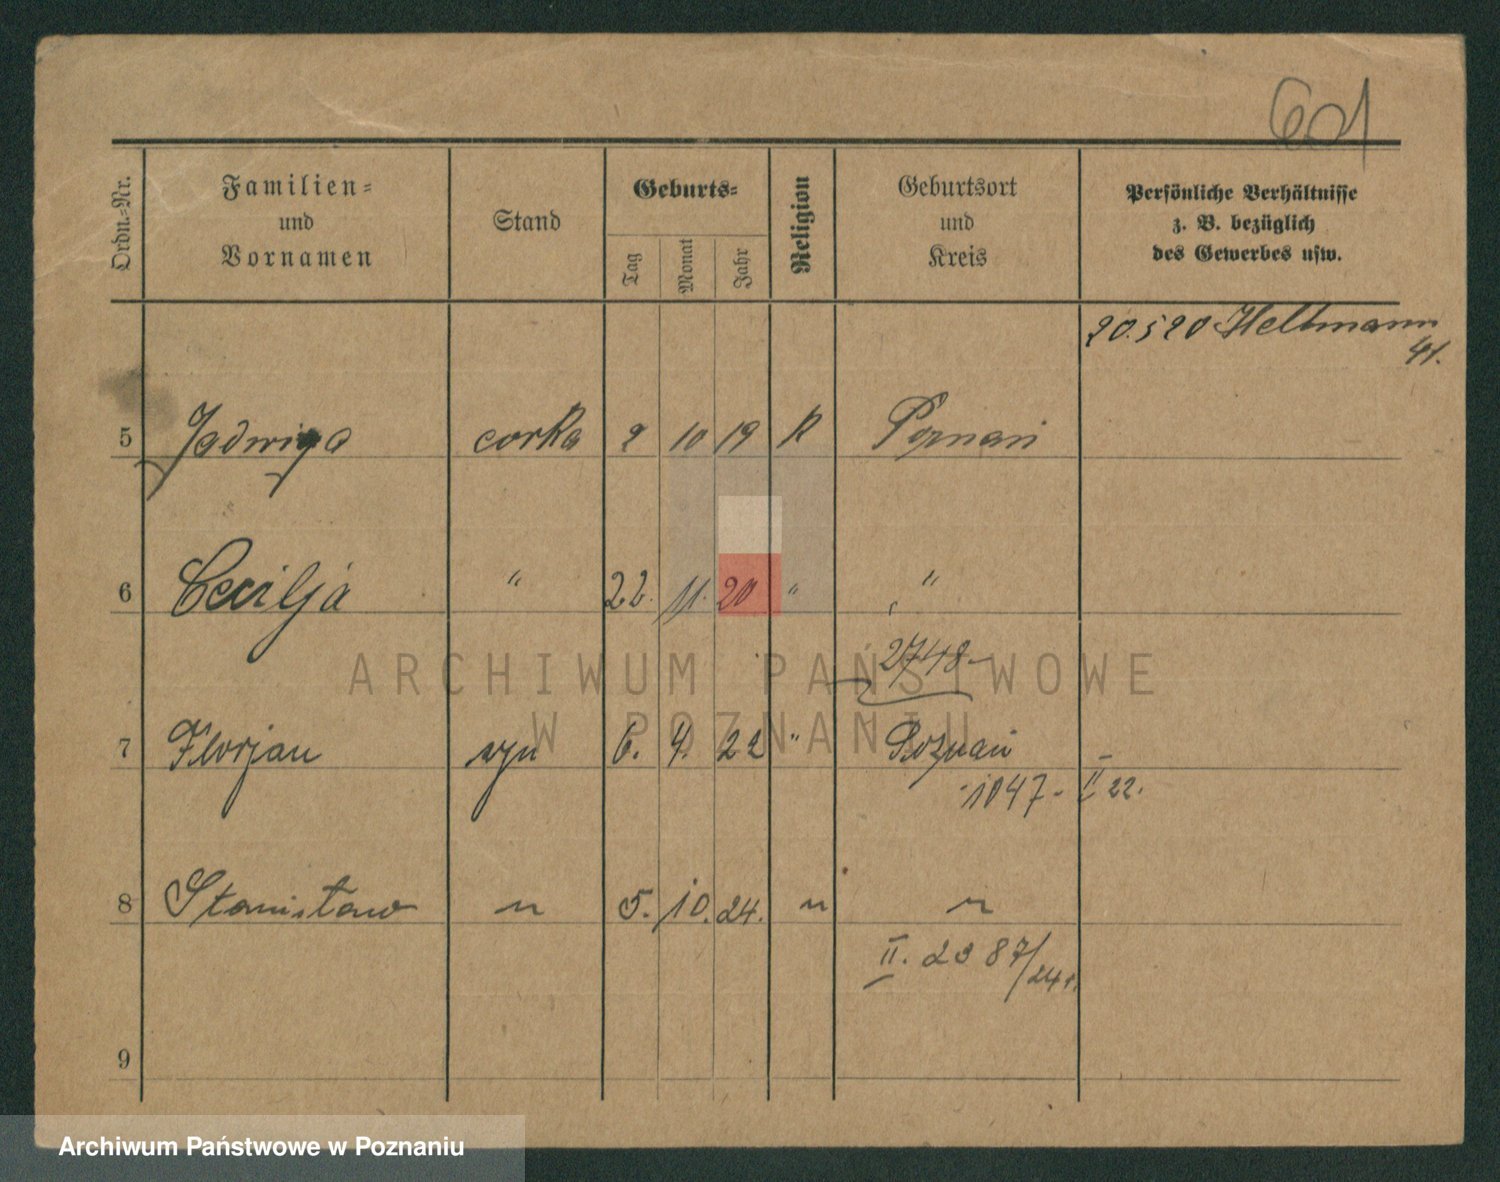 601
Ordn.-Nr.
Familien-
und
Vornamen
Stand
Geburts-
Tag
Monat
Jahr
Religion
Geburtsort
und
Kreis
Persönliche Verhältnisse
z. B. bezüglich
des Gewerbes usw.
20.5 20 Heltmann
41.
5 Jadwiga corka 2 10 19 R Poznań
6 Cecilja " 22. 11. 20 " "
2748-
ARCHIWUM PAŃSTWOWE
W POZNANIU
7 Florjan syn 6. 4. 22 " Poznań -
1047- II 22.
8 Stanisław " 5. 10. 24. " "
II. 2387/24 r.
9
Archiwum Państwowe w Poznaniu